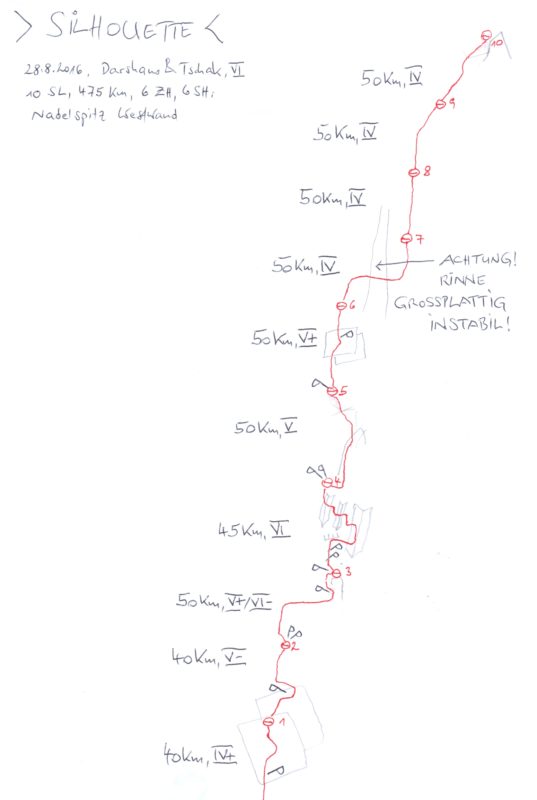 > SILHOUETTE <
28.8.2016, Tschak, VI
10 SL, 475 Km, 6 ZH, 6 SH;
Nadelspitz Westwand
10
50Km, IV
9
50Km, IV
8
50Km, IV
7
50Km, IV
ACHTUNG!
RINNE
GROSSPLATTIG
INSTABIL!
6
50Km, V+
5
50Km, V
4
45Km, VI
3
50Km, V+/VI-
2
40Km, V-
1
40Km, IV+